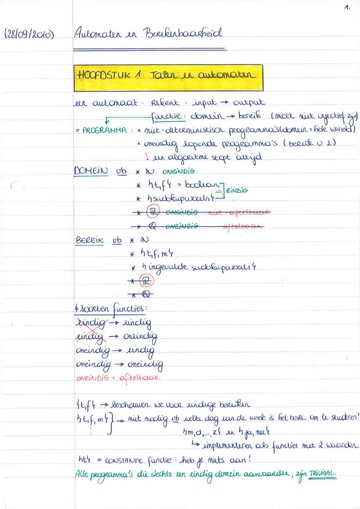 1.
(28/09/2010) Automaten en Berekenbaarheid
HOOFDSTUK 1: Talen en automaten
een automaat: Rekent: input → output
functie: domein → bereik (moet niet injectief zijn)
= PROGRAMMA: * niet-deterministisch programma's (domein = hele wereld)
* oneindig lopende programma's (bereik ∪ ⊥)
! een algoritme stopt altijd
DOMEIN vb * ℕ ONEINDIG
* {t,f} = boolean
* {sudokupuzzels} EINDIG
* ℝ ONEINDIG niet aftelbaar
* Q ONEINDIG aftelbaar
BEREIK vb * ℕ
* {t,f,m}
* {ingevulde sudokupuzzels}
* ℝ
* Q
4 soorten functies:
eindig → eindig
eindig → oneindig
oneindig → eindig
oneindig → oneindig
ONEINDIG = aftelbaar
{t,f} → beschouwen we voor eindige bereiken
{t,f,m} → niet nodig vb welke dag van de week is het beste om te studeren?
{m,d,...z} en {ja,nee}
↳ implementeren als functies met 2 waarden
{t} = CONSTANTE functie: heb je niets aan!
Alle programma's die slechts een eindig domein aanvaarden, zijn TRIVIAAL.